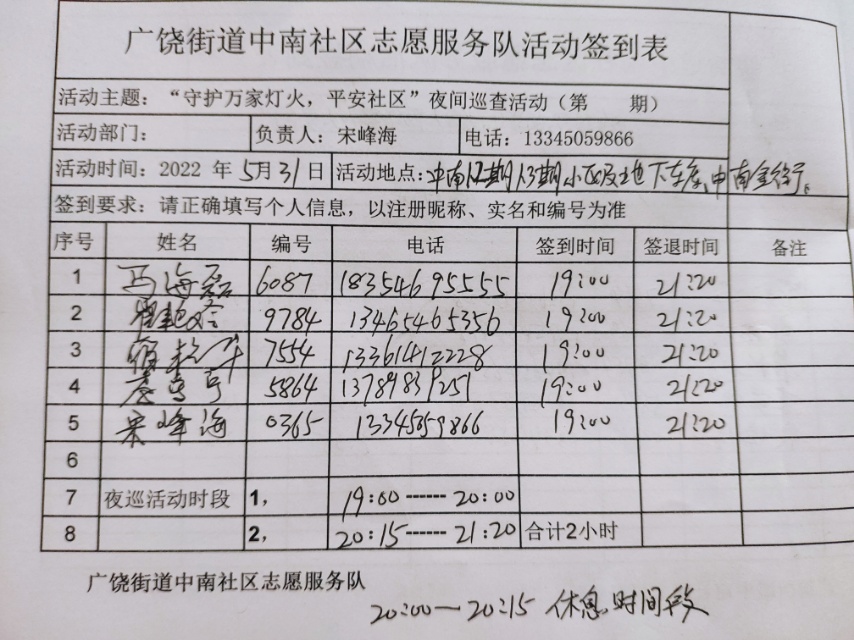 广饶街道中南社区志愿服务队活动签到表
活动主题：“守护万家灯火，平安社区”夜间巡查活动（第 期）
活动部门： 负责人：宋峰海 电话：13345059866
活动时间：2022 年 5月31日 活动地点：中南12期13期小区及地下车库、中南金街。
签到要求：请正确填写个人信息，以注册昵称、实名和编号为准
序号 姓名 编号 电话 签到时间 签退时间 备注
1 马海磊 6087 18354695555 19:00 21:20
2 9784 13465465356 19:00 21:20
3 7554 13361412228 19:00 21:20
4 5864 13789839251 19:00 21:20
5 宋峰海 0365 13345059866 19:00 21:20
6
7 夜巡活动时段 1， 19:00 ------ 20:00
8 2， 20:15 ------ 21:20 合计2小时
广饶街道中南社区志愿服务队
20:00—20:15 休息时间段